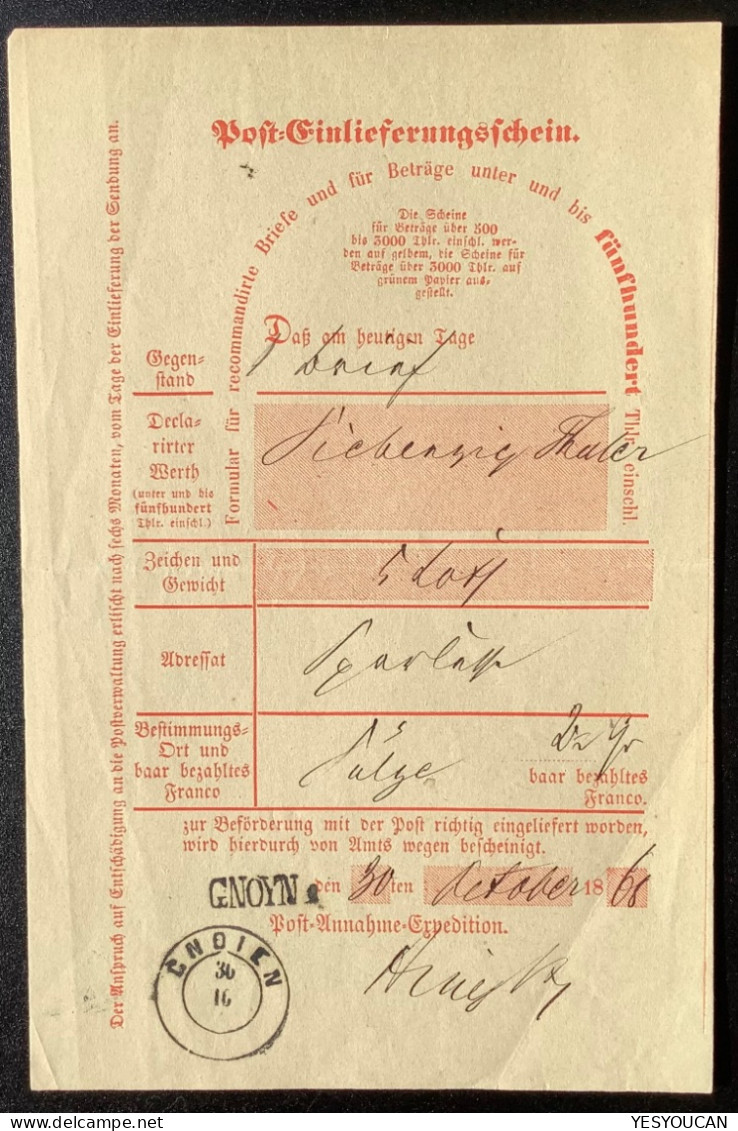 Post-Einlieferungsschein.
Formular für recommandirte Briefe und für Beträge unter und bis fünfhundert Thlr. einschl.
Die Scheine
für Beträge über 500
bis 3000 Thlr. einschl. wer-
den auf gelbem, die Scheine für
Beträge über 3000 Thlr. auf
grünem Papier aus-
gestellt.
Daß am heutigen Tage
Gegen-
stand
1 Brief
Decla-
rirter
Werth
(unter und bis
fünfhundert
Thlr. einschl.)
Siebenzig Thaler
Zeichen und
Gewicht
5 Loth
Adressat
Bestimmungs-
Ort und
baar bezahltes
Franco
Sülze
baar bezahltes
Franco.
zur Beförderung mit der Post richtig eingeliefert worden,
wird hierdurch von Amts wegen bescheinigt.
GNOYN den 30ten October 1868
Post-Annahme-Expedition.
GNOIEN
30
10
Der Anspruch auf Entschädigung an die Postverwaltung erlischt nach sechs Monaten, vom Tage der Einlieferung der Sendung an.
YESYOUCAN